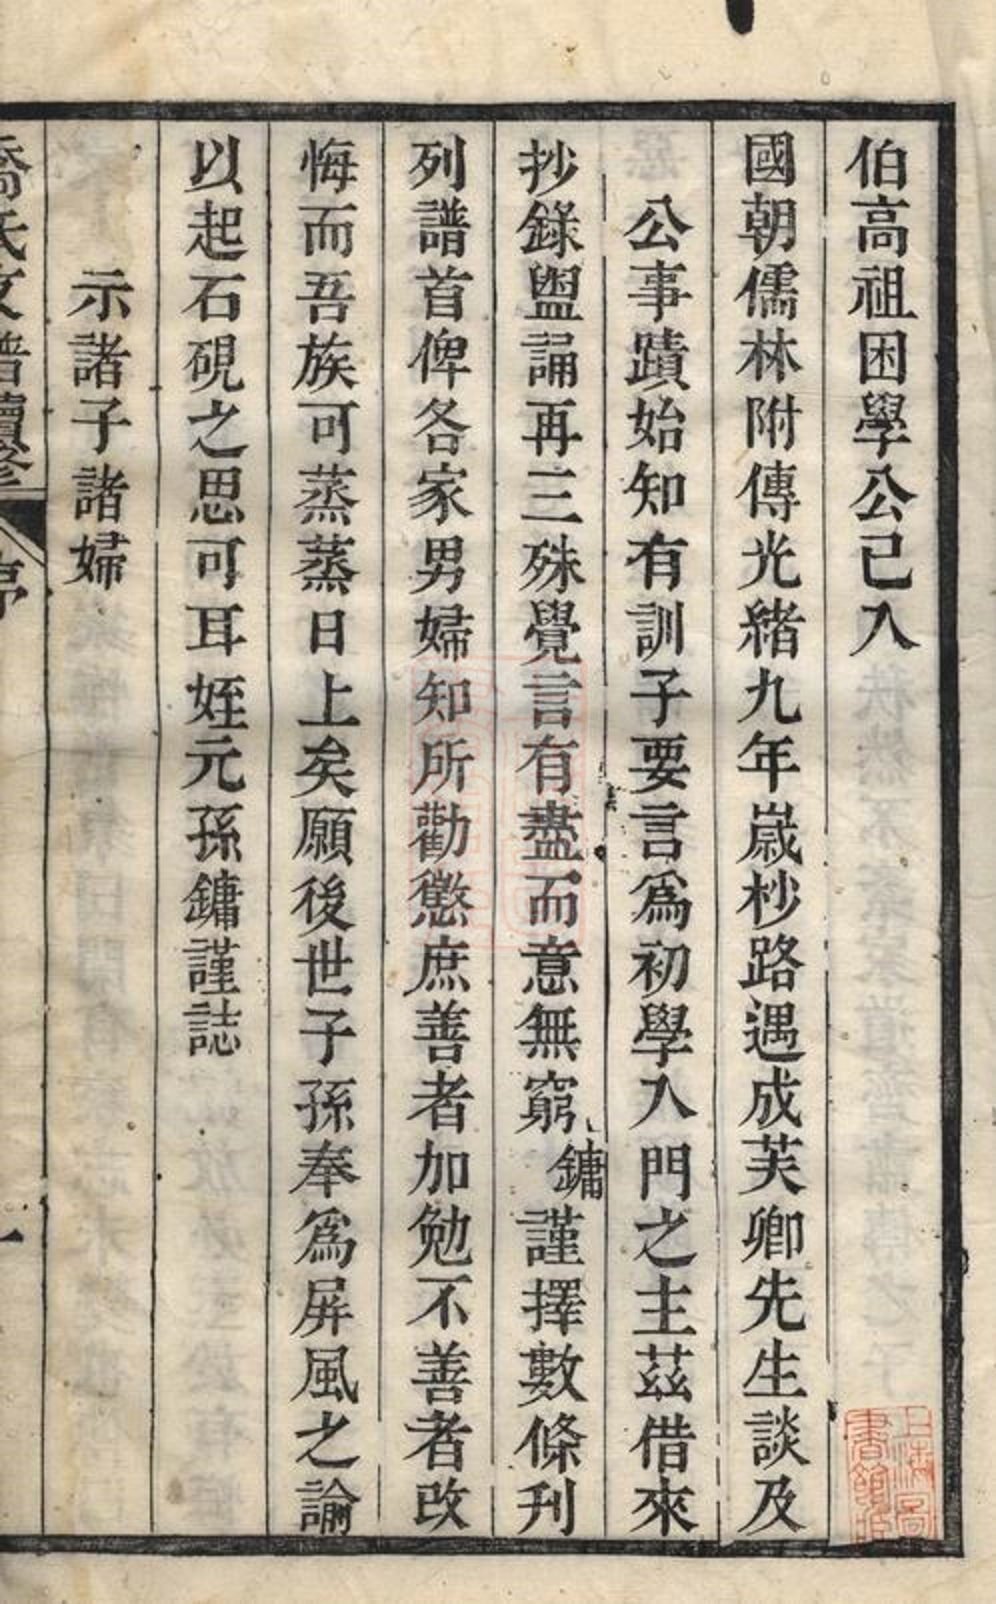 伯高祖困學公已入
國朝儒林附傳光緒九年歲杪路遇成芙卿先生談及
公事蹟始知有訓子要言爲初學入門之主茲借來
抄錄盥誦再三殊覺言有盡而意無窮鏞謹擇數條刊
列譜首俾各家男婦知所勸懲庶善者加勉不善者改
悔而吾族可蒸蒸日上矣願後世子孫奉爲屏風之論
以起石硯之思可耳姪元孫鏞謹誌
示諸子諸婦
喬氏文譜續修
序
一
上海圖書館藏